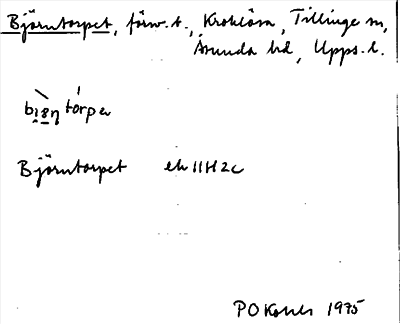 Björntorpet, förv. t., Kroklösa, Tillinge sn,
Åsunda hd, Upps. l.
Björntorpet ek 11H2c
1975